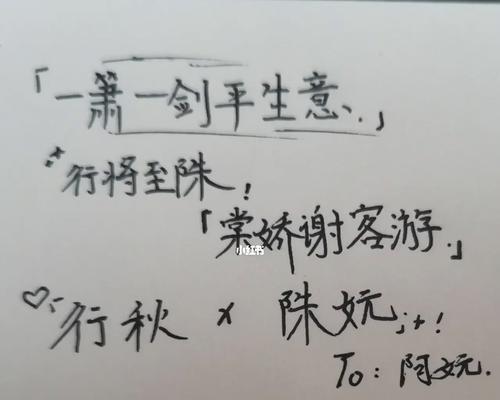 「一箫一剑平生意、.」
行将至陎!
「棠娇谢客游.」
小红书
♡行秋 × 陎妧;+!
To: 阿妧.